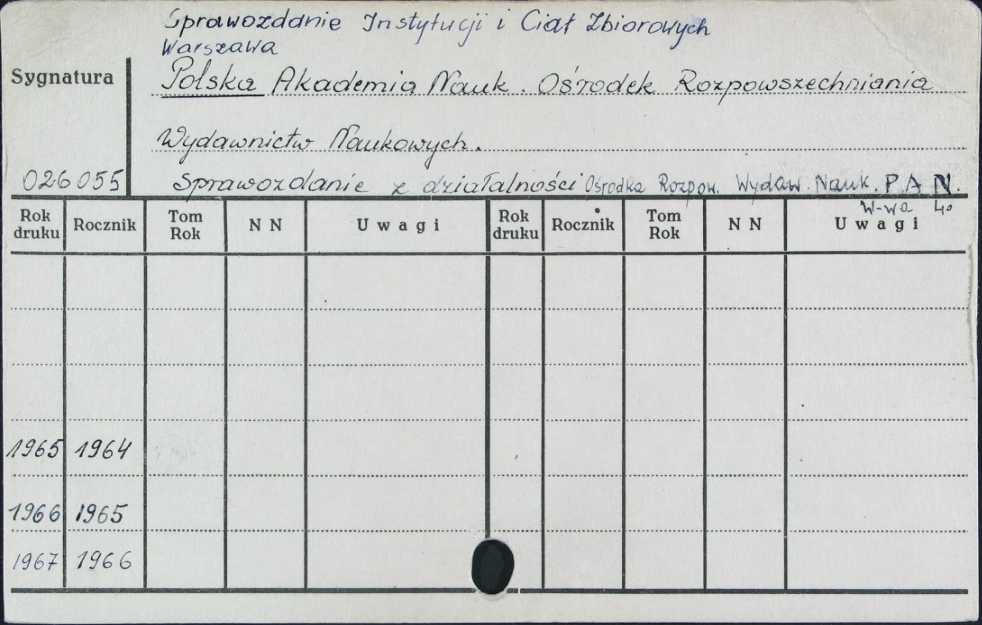 Sprawozdanie Instytucji i Ciał Zbiorowych
Warszawa
Sygnatura
Polska Akademia Nauk. Ośrodek Rozpowszechniania
Wydawnictw Naukowych.
026055
Sprawozdanie z działalności Ośrodka Rozpow. Wydaw. Nauk. P.A.N.
W-wa 40
Rok druku Rocznik Tom Rok N N Uwagi Rok druku Rocznik Tom Rok N N Uwagi
1965 1964
1966 1965
1967 1966